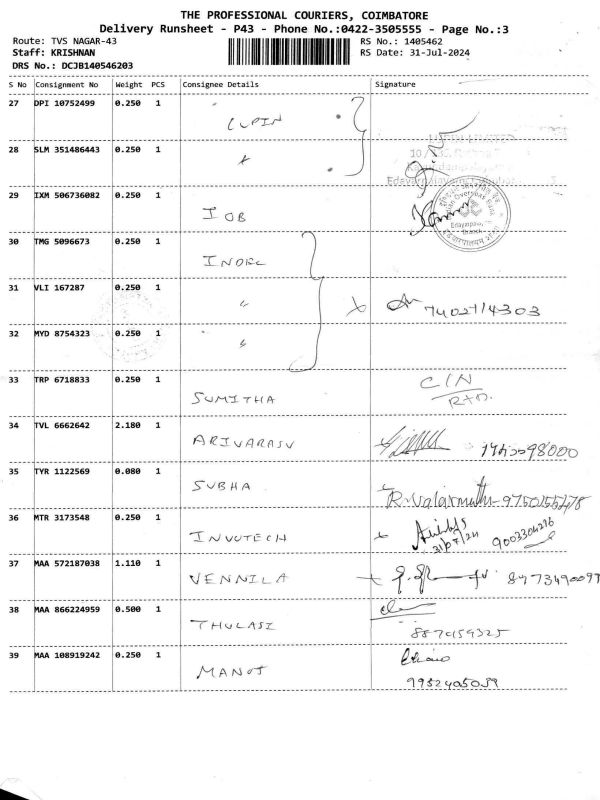 THE PROFESSIONAL COURIERS, COIMBATORE
Delivery Runsheet - P43 - Phone No.:0422-3505555 - Page No.:3
Route: TVS NAGAR-43 RS No.: 1405462
Staff: KRISHNAN RS Date: 31-Jul-2024
DRS No.: DCJB140546203
S No Consignment No Weight PCS Consignee Details Signature
27 DPI 10752499 0.250 1 LUPIN
28 SLM 351486443 0.250 1 "
29 IXM 506736082 0.250 1 IOB
Edayarpalayam
Branch
30 TMG 5096673 0.250 1 INDEL
31 VLI 167287 0.250 1 " 7402114303
32 MYD 8754323 0.250 1 "
33 TRP 6718833 0.250 1 SUMITHA C/N
34 TVL 6662642 2.180 1 ARIVARASU
35 TYR 1122569 0.080 1 SUBHA R. Valarmathi - 9750155278
36 MTR 3173548 0.250 1 INVOTECH
31/07/24 9003304216
37 MAA 572187038 1.110 1 VENNILA 8973490097
38 MAA 866224959 0.500 1 THULASI
8870159325
39 MAA 108919242 0.250 1 MANOJ
9952405059